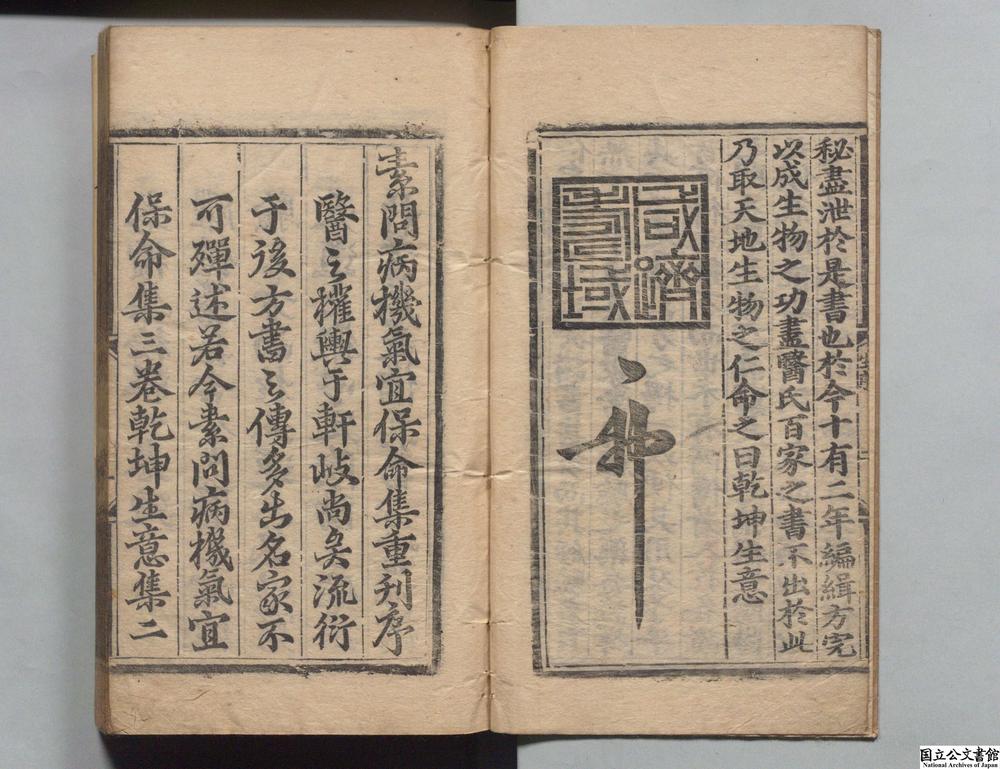 秘盡泄於是書也於今十有二年編緝方完
以成生物之功盡醫氏百家之書不出於此
乃取天地生物之仁命之曰乾坤生意
素問病機氣宜保命集重刋序
醫之權輿于軒岐尚矣流衍
于後方書之傳多出名家不
可殫述若今素問病機氣宜
保命集三卷乾坤生意集二
国立公文書館
National Archives of Japan